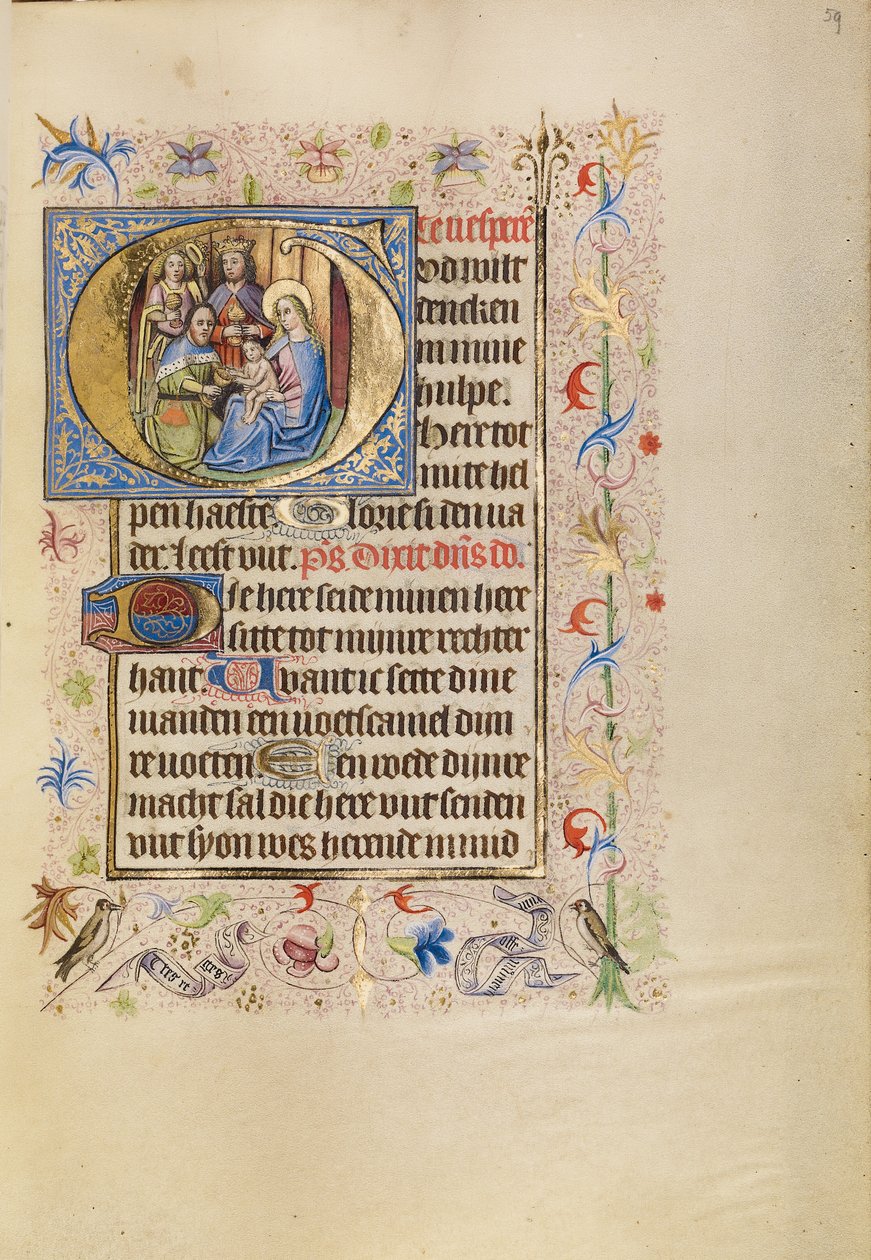 59
Te uesperē
od wilt
dencken
in mine
hulpe.
Here tot
mi te hel
pen haeste. Glorie si den ua
der. Leest vut. ps. Dixit dn̄s do.
Die here seide minen here
sitte tot mijnre rechter
hant. Want ic sette dine
uianden een uoetscamel dijn
re uoeten. Een roede dijnre
macht sal die here vut senden
vut syon wes herende in mid
Tres re
ges